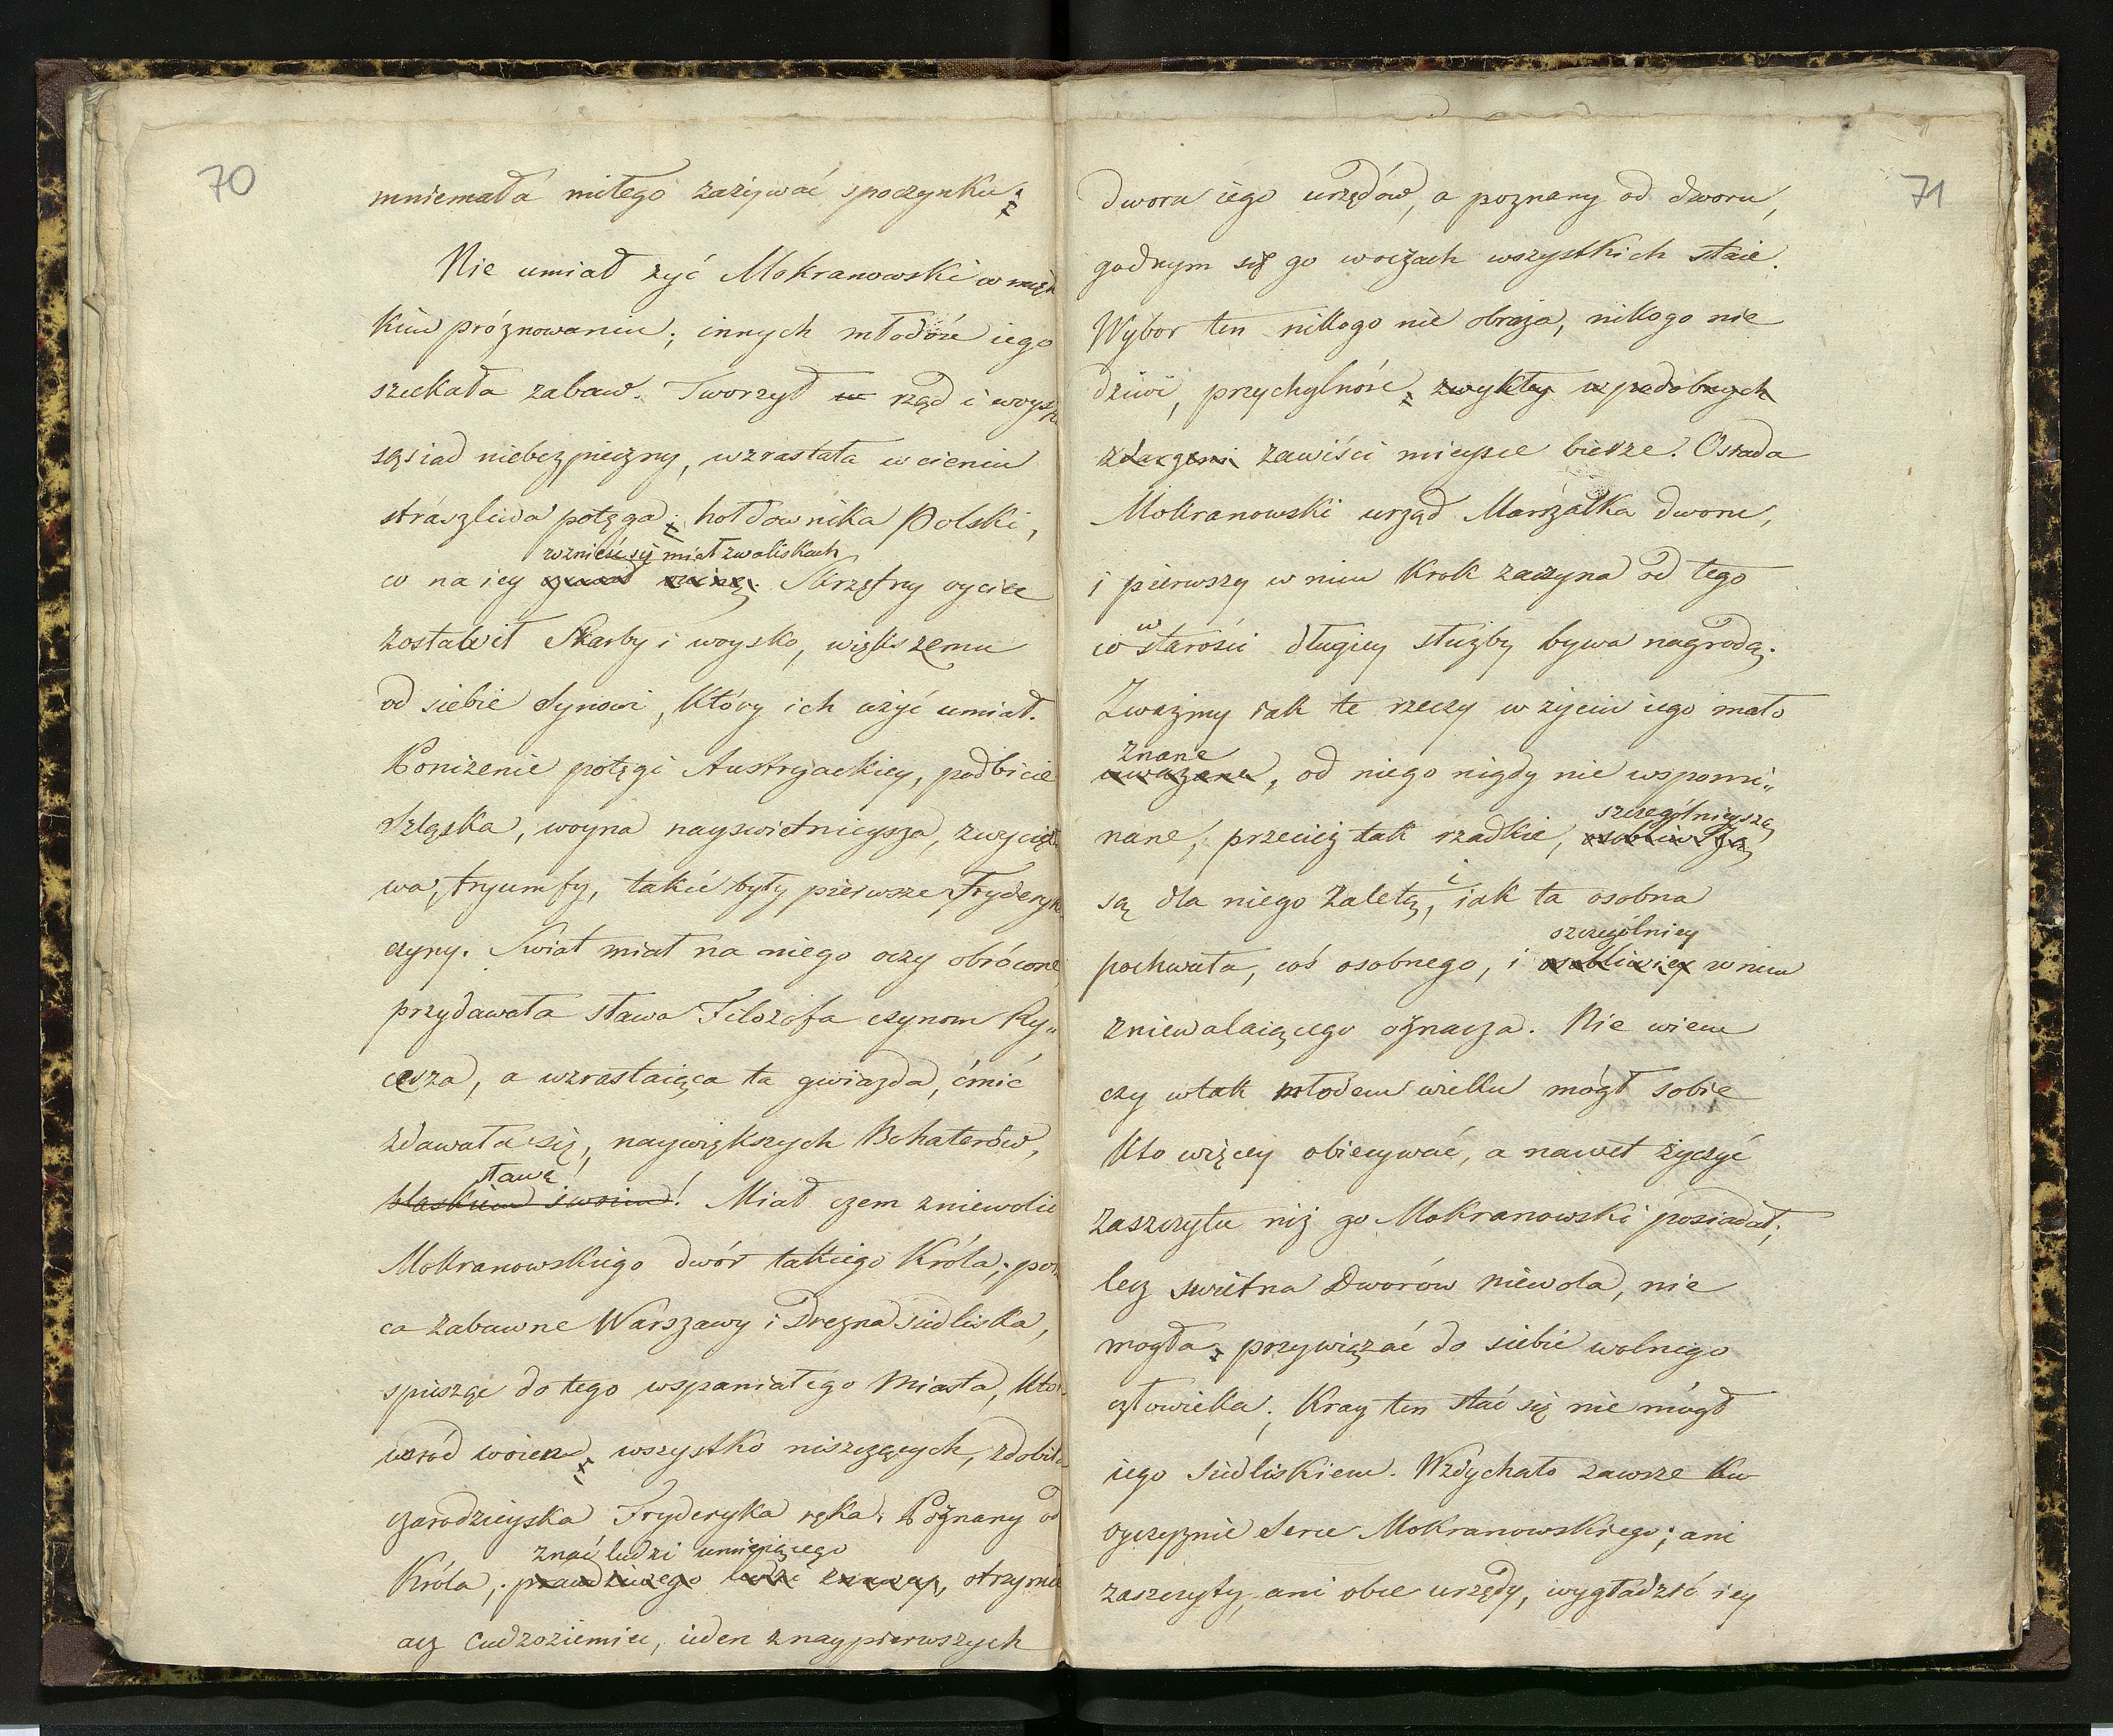 70
mniemała miłego zażywać spoczynku.
Nie umiał żyć Mokranowski w mięk
kim próznowaniu; innych młodość iego
szukała zabaw. Tworzył w rząd i woysko
sąsiad niebezpieczny, wzrastała w cieniu
straszliwa potęga, hołdownika Polski,
wznieść się miał zwaliskach
co na iey Skrzętny oyciec
zostawił Skarby i woysko, większemu
od siebie Synowi, który ich użyć umiał.
Poniżenie potęgi Austryackiey, podbicie
Szląska, woyna nayswietnieysza, zwycięz
wa, tryumfy, takie były pierwsze Fryderyk
czyny. Swiat miał na niego oczy obrócone
przydawała sława Filozofa czynom Ry„
cerza, a wzrastaiąca ta gwiazda, ćmić
zdawała się, naywiększych Bohaterów,
sławę!
blaskiem swoim! Miał czem zniewolić
Mokranowskiego dwór takiego Króla; porzu
ca zabawne Warszawy i Drezna siedliska,
spiesząc do tego wspaniałego Miasta, które
wsród woien, wszystko niszczących, zdobiła
czarodzieyska Fryderyka ręka. Poznany od
znać ludzi umieiącego
Króla, prawdziwego ludzi otrzymuie
acz Cudzoziemiec, ieden z naypierwszych
71
dworu iego urzędów, a poznany od dworu,
godnym się go w oczach wszystkich staie.
Wybór ten nikogo nie obraża, nikogo nie
dziwi, przychylność, zwykłey w podobnych
zdarzeni zawiści mieysce bierze. Osiada
Mokranowski urząd Marszałka dworu,
i pierwszy w nim krok zaczyna od tego
w
co starości długiey służby bywa nagrodą.
Zważmy iak te rzeczy w życiu iego mało
znane
uważane, od niego nigdy nie wspomi„
szczególnieyszą
nane, przecież tak rzadkie, osobliwszą
i
są dla niego zaletą, iak ta osobna
szczególniey
pochwała, coś osobnego, i osobliwiey w nim
zniewalaiącego oznacza. Nie wiem
czy w tak młodem wieku mógł sobie
kto więcey obiecywać, a nawet życzyć
zaszczytu niż go Mokranowski posiadał;
lecz swietna Dworów niewola, nie
mogła, przywiązać do siebie wolnego
człowieka. Kray ten stać się nie mógł
iego siedliskiem. Wzdychało zawsze ku
oyczyznie Serce Mokranowskiego; ani
zaszczyty, ani obce urzędy, wygładzić iey